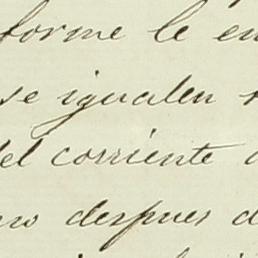 forme le en
se igualen
del corriente
despues d